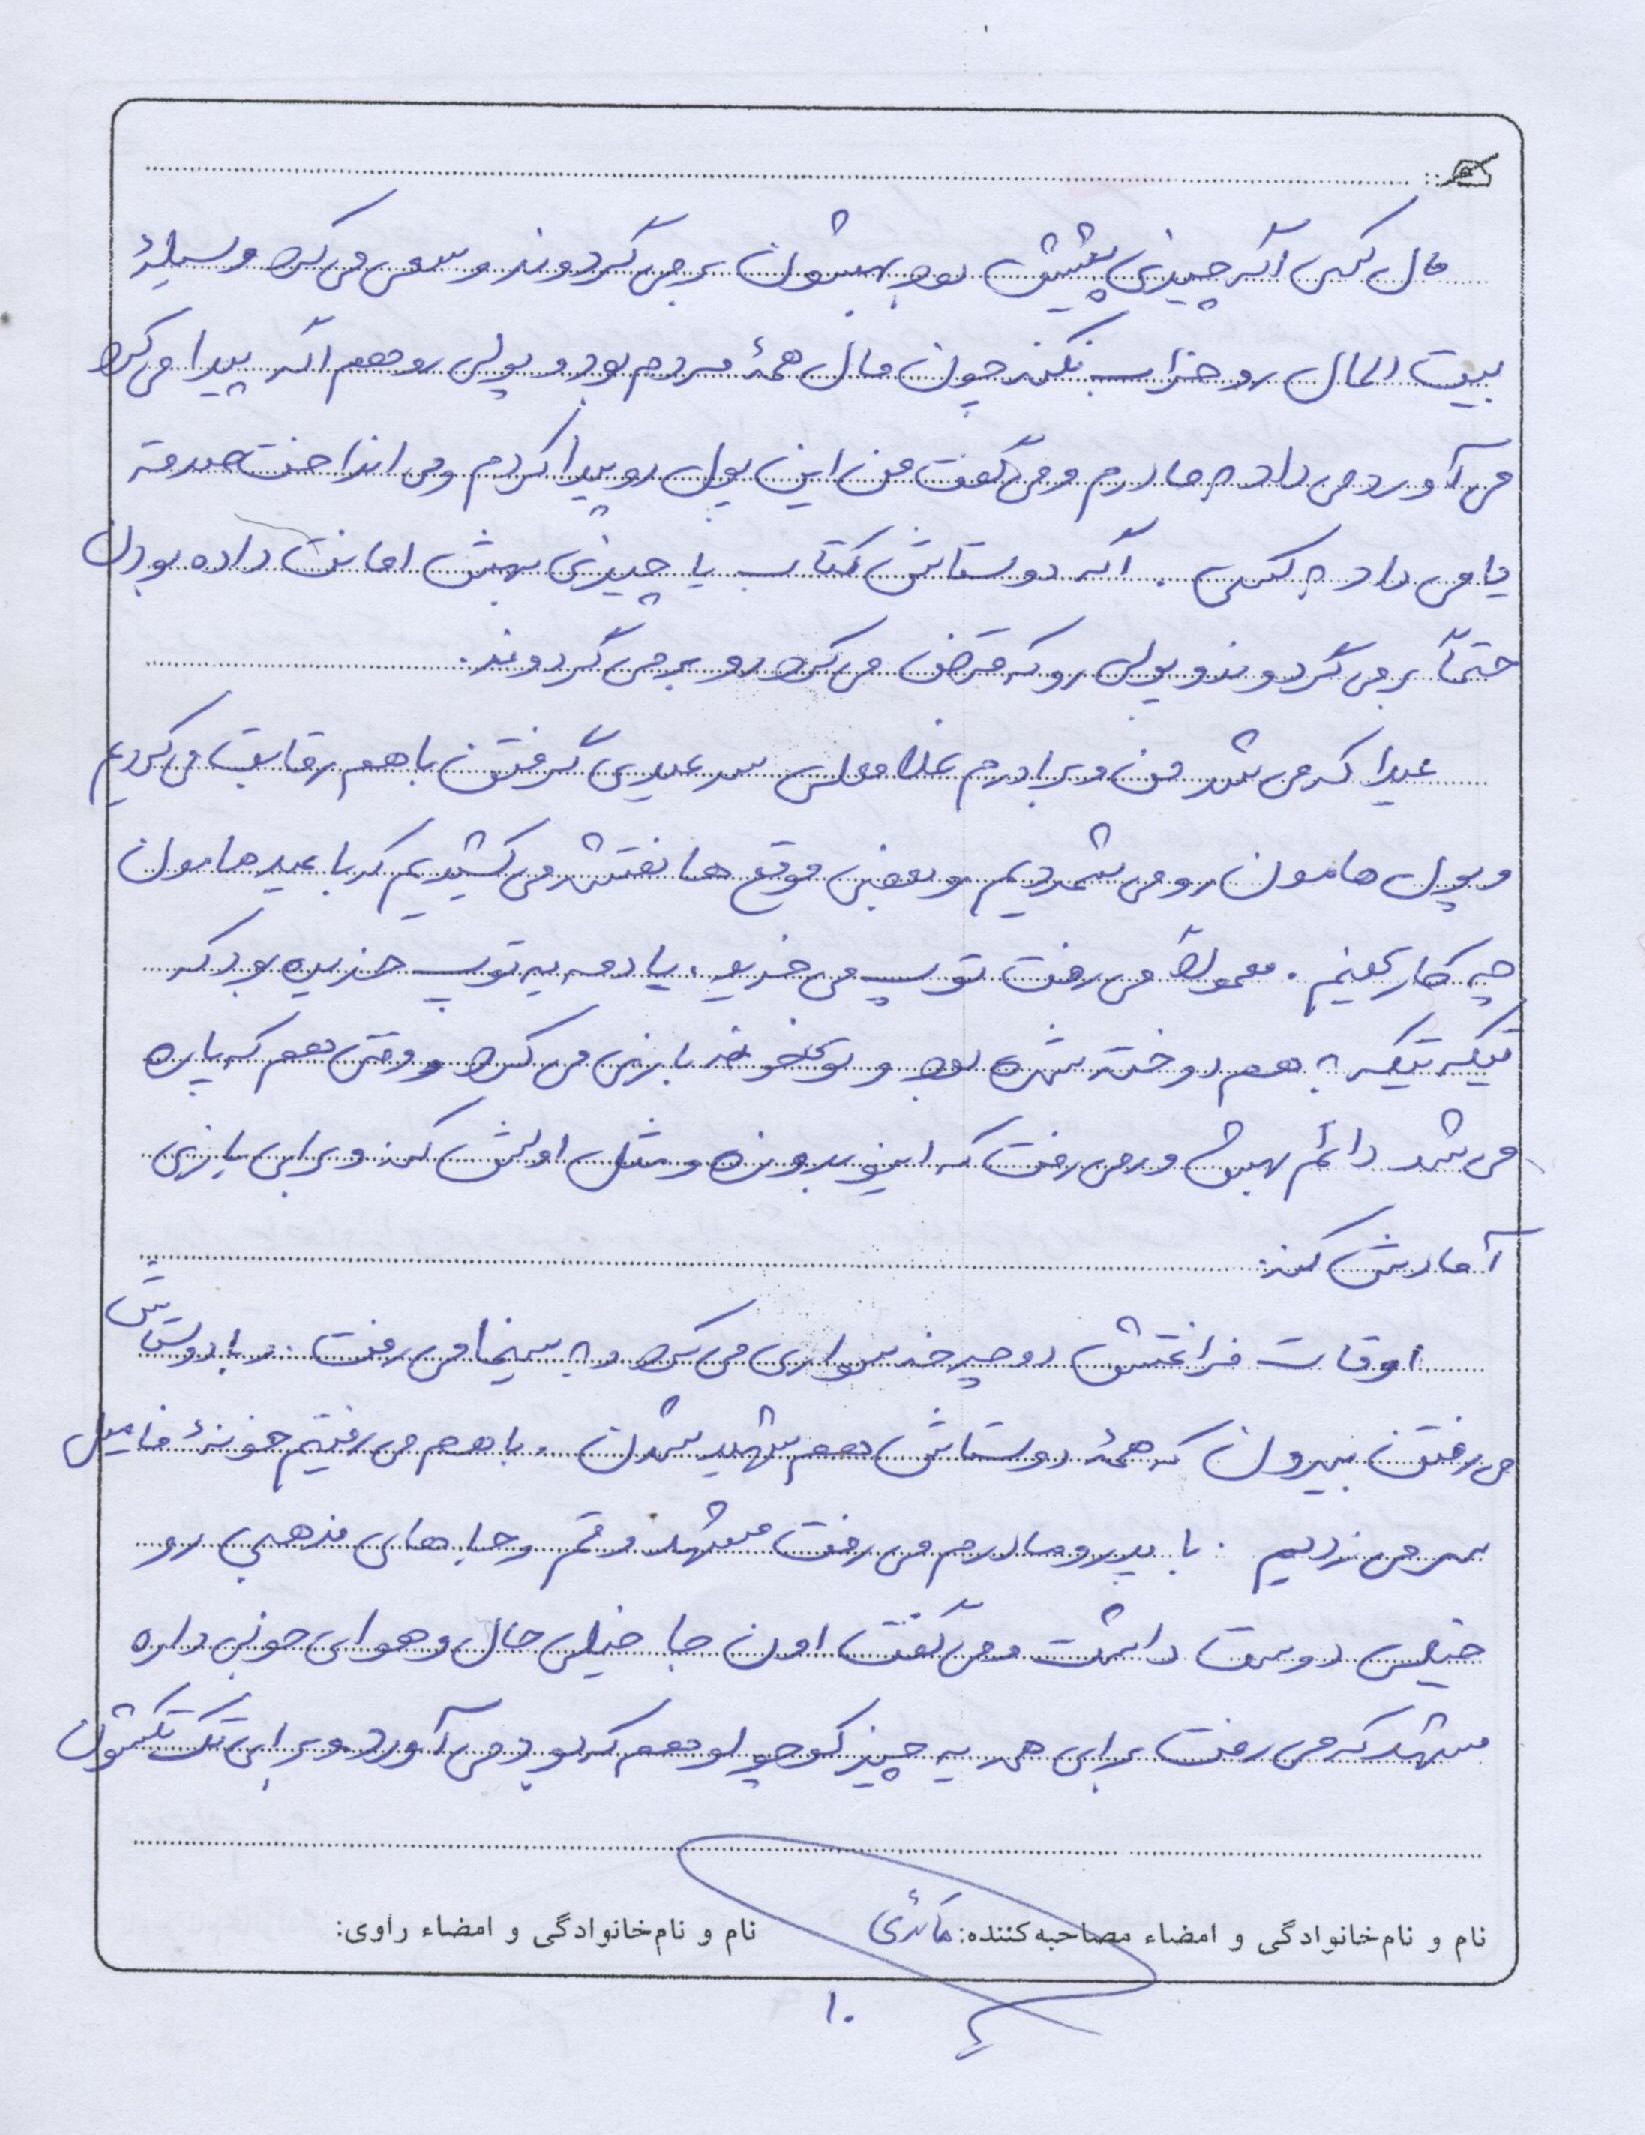 مال کسی اگه چیزی پیشش بود بهشون برمی گردوند و سعی می کرد وسیلهٔ
بیت المال رو خراب نکنه چون مال همهٔ مردم بود و پولی رو هم اگه پیدا می کرد
می آورد می داد به مادرم و می گفت من این پول رو پیدا کردم و می انداخت صدقه
یا می داد به کسی . اگه دوستاش کتاب یا چیزی بهش امانت داده بودن
حتماً برمی گردوند و پولی رو که قرض می کرد رو برمی گردوند.
عیدا که می شد من و برادرم غلامعلی سر عیدی گرفتن با هم رقابت می کردیم
و پول هامون رو می شمردیم و بعضی موقع ها نقشه می کشیدیم که با عیدهامون
چه کار بکنیم . معمولاً می رفت توپ می خرید . یادمه یه توپ خریده بود که
تیکه تیکه به هم دوخته شده بود و تو خونه بازی می کرد و وقتی هم که پاره
می شد دائم بهش ور می رفت که اینو بدوزه و مثل اولش کنه و برای بازی
آمادش کنه.
اوقات فراغتش دوچرخه سواری می کرد و به سینما می رفت . و با دوستاش
می رفتن بیرون که همهٔ دوستاش هم شهید شدن . با هم می رفتیم خونهٔ فامیل
سر می زدیم . با پدر و مادرم می رفت مشهد و قم و جاهای مذهبی رو
خیلی دوست داشت و می گفت اون جا خیلی حال و هوای خوبی داره
مشهد که می رفت برای همه یه چیز کوچولو هم که بود می آورد و برای تک تکشون
نام و نام‌خانوادگی و امضاء مصاحبه‌کننده: نام و نام‌خانوادگی و امضاء راوی:
۱۰